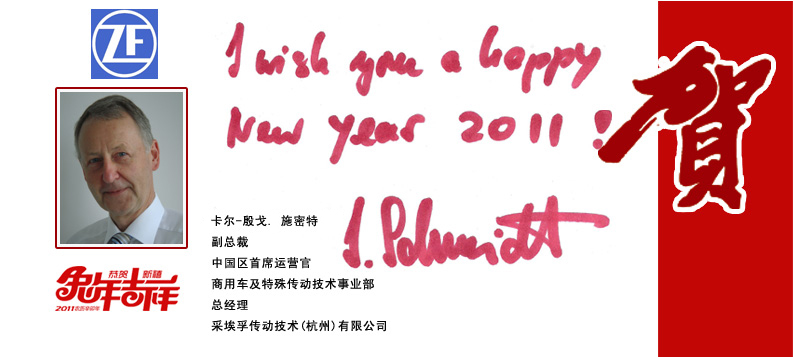 ZF
I wish you a happy
New year 2011 !
贺
I. Schmidt
卡尔-殷戈. 施密特
副总裁
中国区首席运营官
商用车及特殊传动技术事业部
总经理
采埃孚传动技术(杭州)有限公司
恭贺 新禧
兔年吉祥
2011农历辛卯年